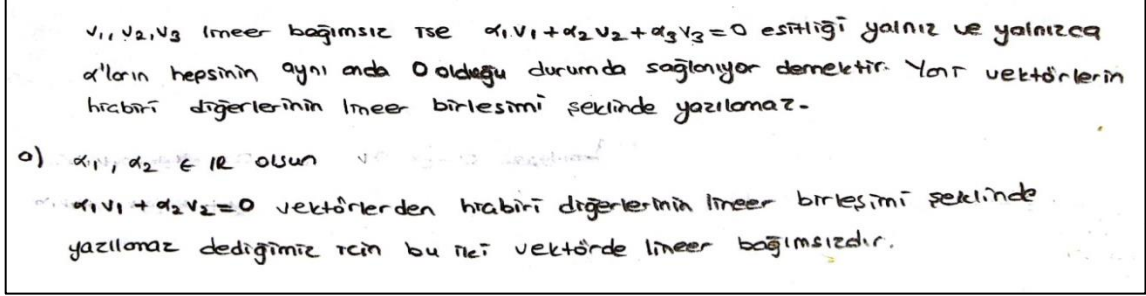 v₁, v₂, v₃ lineer bağımsız ise α₁.v₁+α₂v₂+α₃v₃=0 esitliği yalnız ve yalnızca
α'ların hepsinin aynı anda 0 olduğu durumda sağlanıyor demektir. Yani vektörlerin
hiçbiri diğerlerinin lineer birlesimi seklinde yazılamaz.
a) α₁, α₂ ∈ IR olsun
α₁v₁ + α₂v₂=0 vektörlerden hiçbiri diğerlerinin lineer birleşimi şeklinde
yazılamaz dediğimiz için bu iki vektörde lineer bağımsızdır.